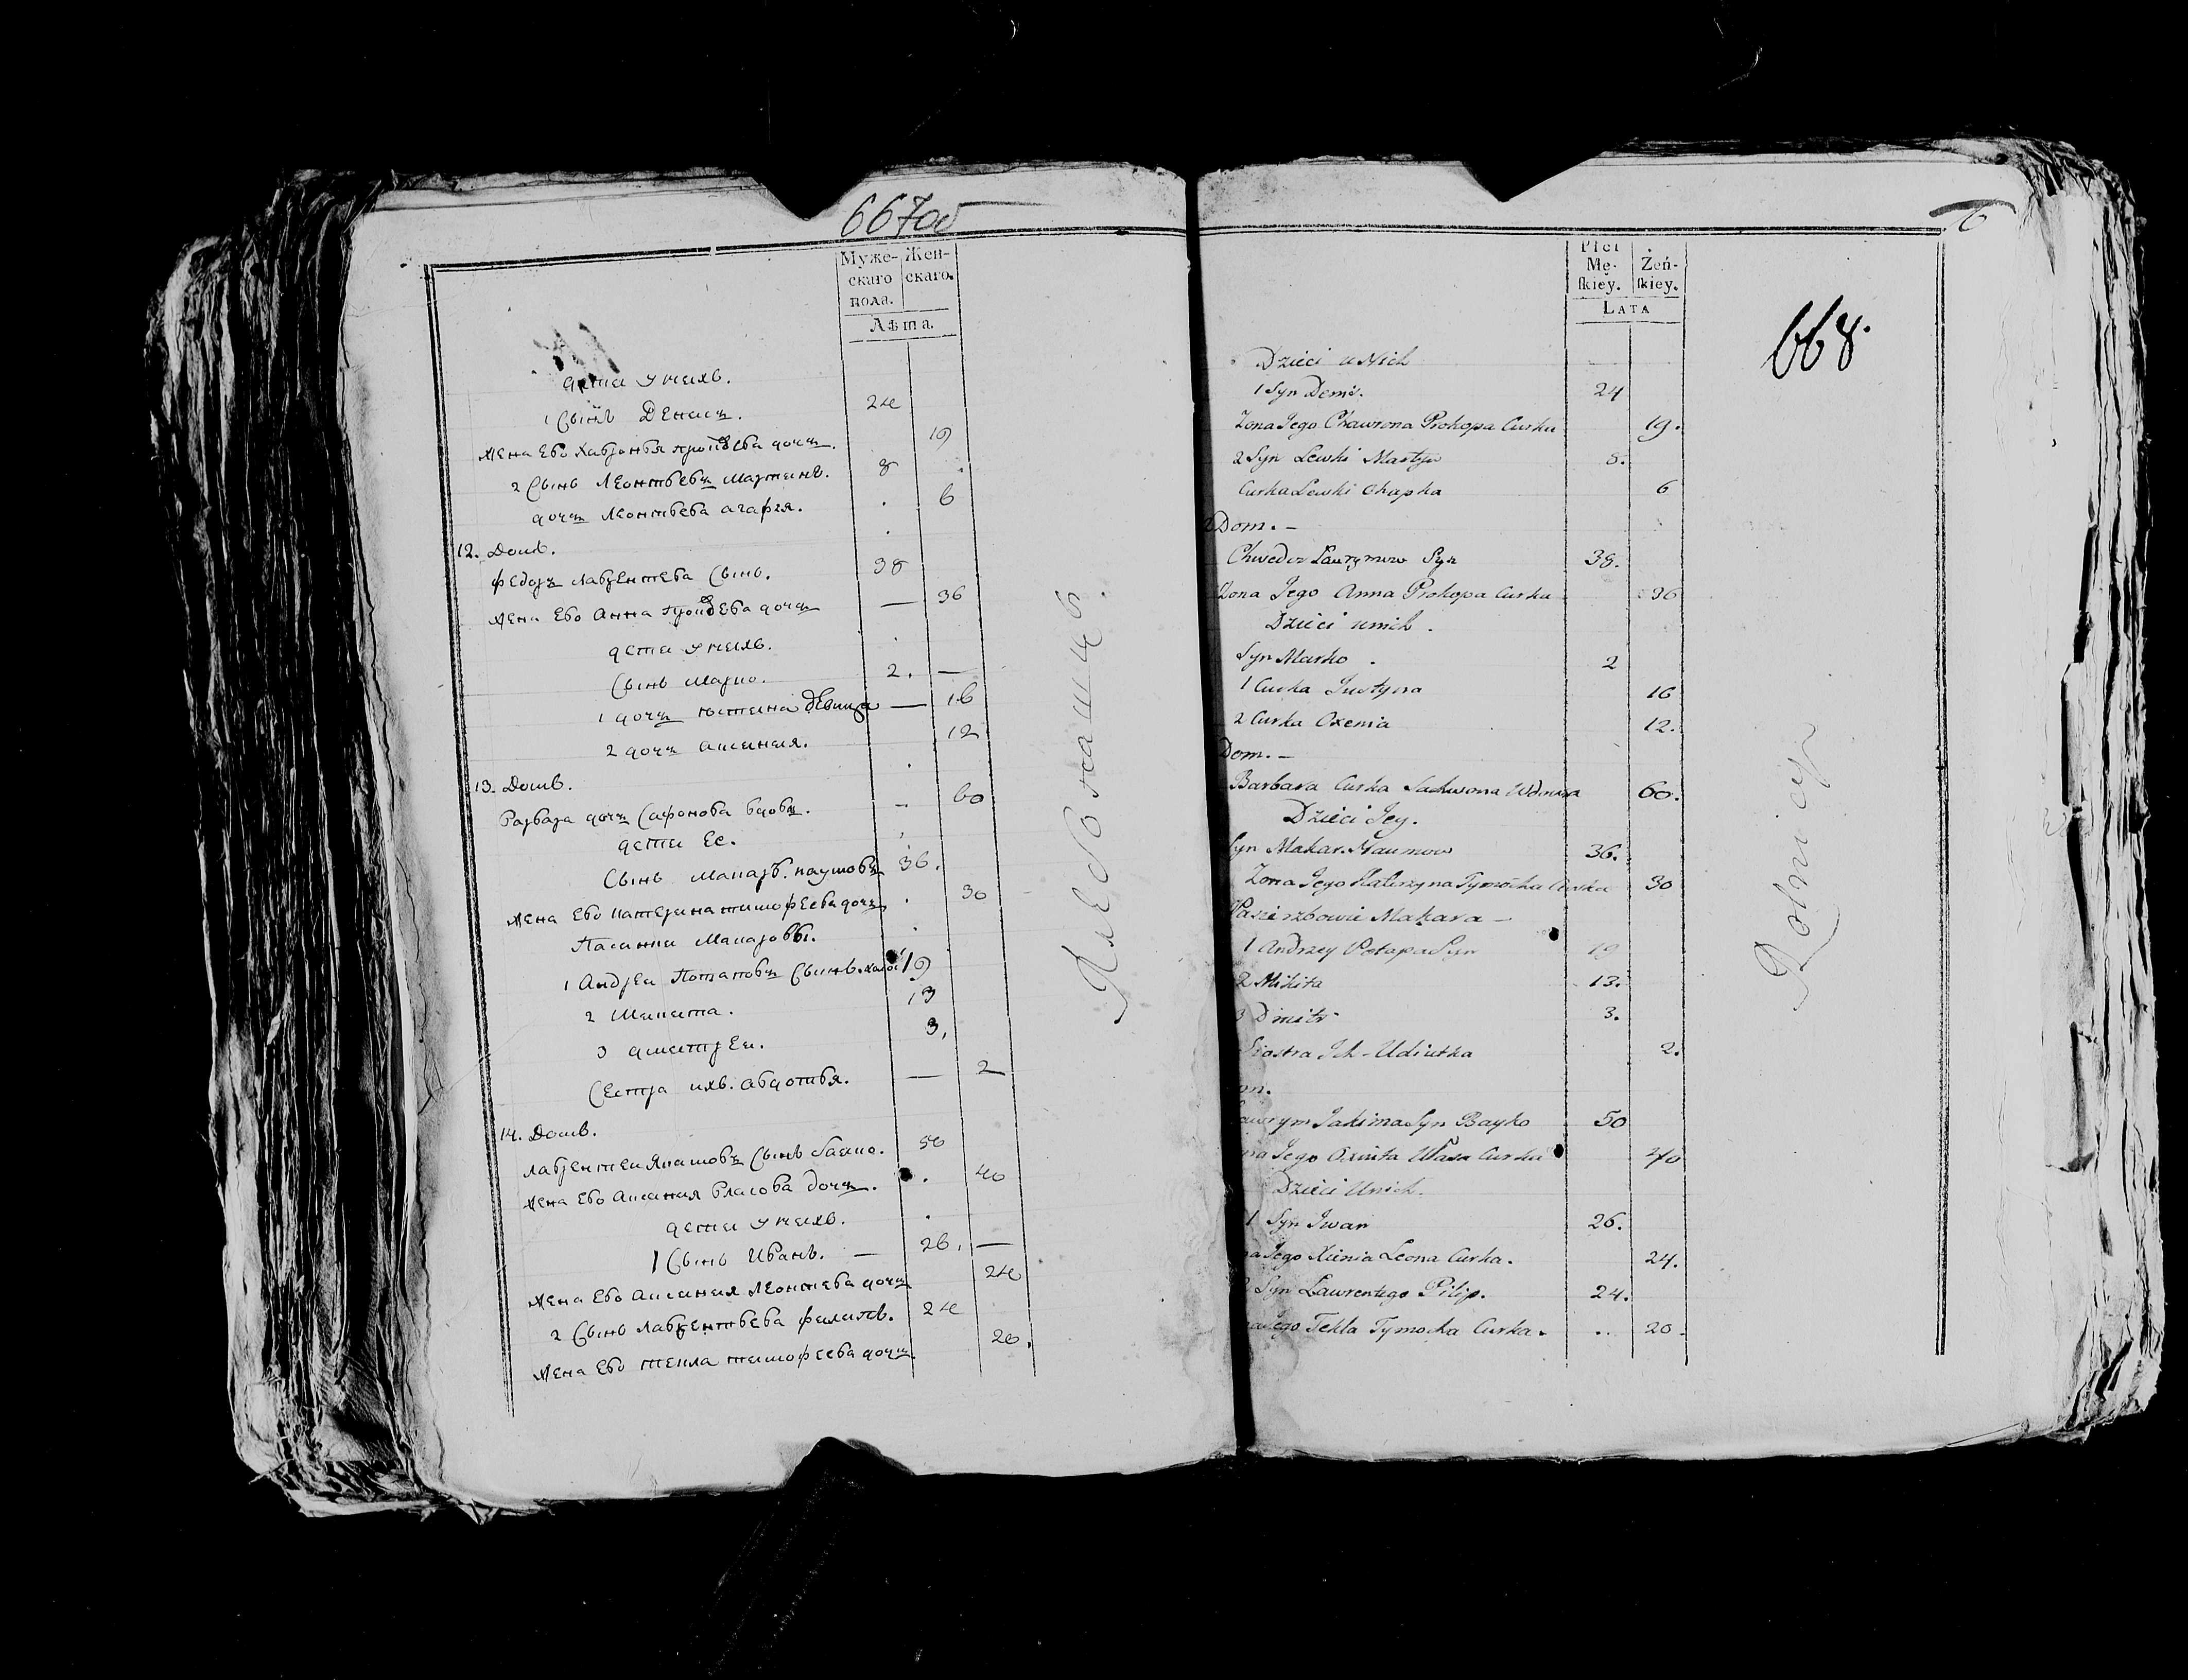 667об
Муже- Жен-
скаго скаго.
пола.
Лѣта.
дети у нихъ.
1 Сынъ Денисъ. 24
Жена Ево Хавронья прокофьева дочъ. 19
2 Сынъ Леонтьевъ Мартинъ. 8
дочъ Леонтьева агафия. 6
12. Домъ.
Федоръ лаврентева Сынъ. 38
Жена Ево Анна прокофьева дочъ — 36
дети у нихъ.
Сынъ Марко. 2. —
1 дочъ юстина девица — 16
2 дочъ аксиния. 12
13. Домъ.
Варвара дочъ Сафонова вдова. 60
дети Ее.
Сынъ Макаръ. наумовъ 36.
Жена Ево катерина тимофеева дочъ 30
Пасинки Макаровы.
1 Андреи Потаповъ Сынъ. 19
2 Микита. 13
3 дмитреи. 3.
Сестра ихъ. авдотья. — 2
14. Домъ.
лаврентеи Якимовъ Сынъ баико. 50
Жена Ево аксиния власова дочъ. 40
дети у нихъ.
1 Сынъ Иванъ. — 26. —
Жена Ево аксиния леонтева дочъ 24
2 Сынъ лаврентьева филипъ. 24
Жена Ево текла тимофеева дочъ. 20.
Хлебопашцъ
6
668.
Płci
Mę- Żeń-
skiey. skiey.
LATA
Dzieci u Nich
1 Syn Denis. 24
Zona Jego Chawrona Prokopa Curka 19.
2 Syn Lewki Martyn 8.
Curka Lewki Ohapka 6
Dom. —
Chwedor Laurymow Syn 38.
Zona Jego Anna Prokopa Curka 36
Dzieci u nich.
Syn Marko. 2
1 Curka Justyna 16
2 Curka Oxenia 12.
Dom. —
Barbara Curka Sadusona Wdowa 60.
Dzieci Jey.
Syn Makar. Naumow 36.
Zona Jego Katerzyna Tymocha Curka 30
Pasierzbowie Makara —
1 Andrzey Potapa Syn 19
2 Mikita 13.
3 Dmitr 3.
Siostra Ich - Udiutka 2.
om.
awrym Jakima Syn Bayko 50
na Jego Oxinia Własa Curka 40
Dzieci Unich.
1 Syn Iwan 26.
na Jego Xienia Leona Curka. 24.
2 Syn Laurentego Pilip. 24.
na Jego Tekla Tymocha Curka. 20.
Rolnicy